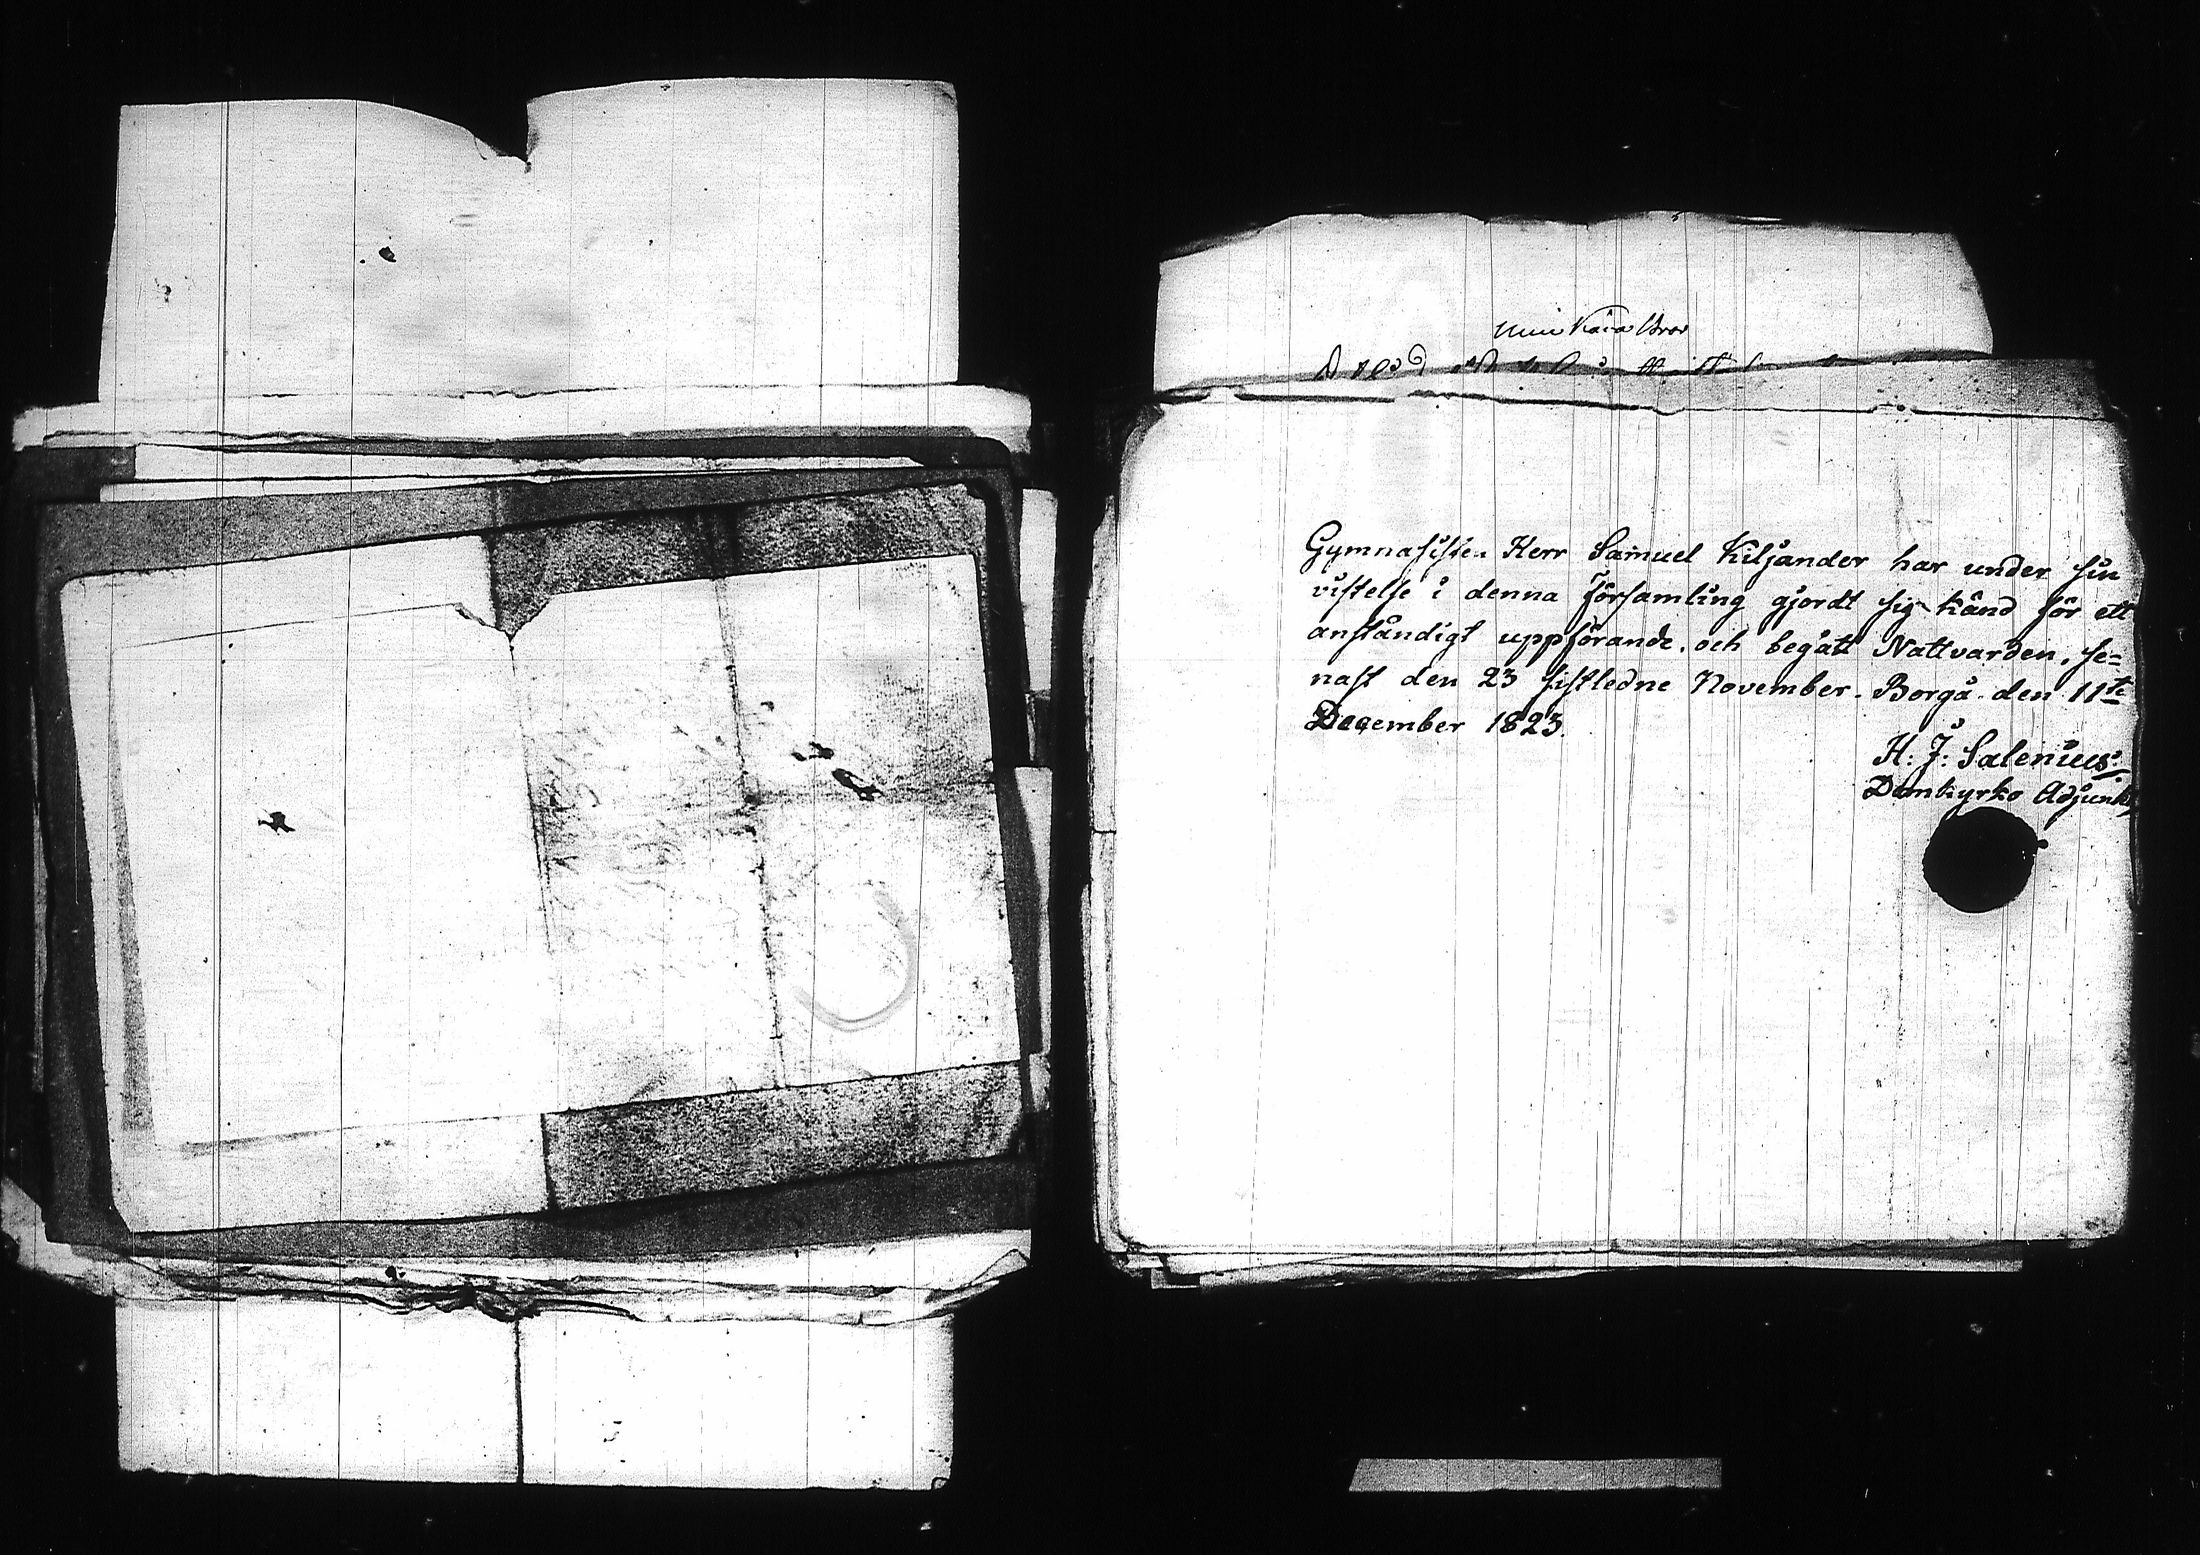 Min Kära Bror
Gymnasisten Herr Samuel Kiljander har under sin
vistelse i denna Församling gjordt sig känd för ett
anständigt uppförande, och begått Nattvarden, se=
nast den 23 sistledne November. Borgå den 11te
December 1823.
H: J: Salenius.
Domkyrko Adjunkt